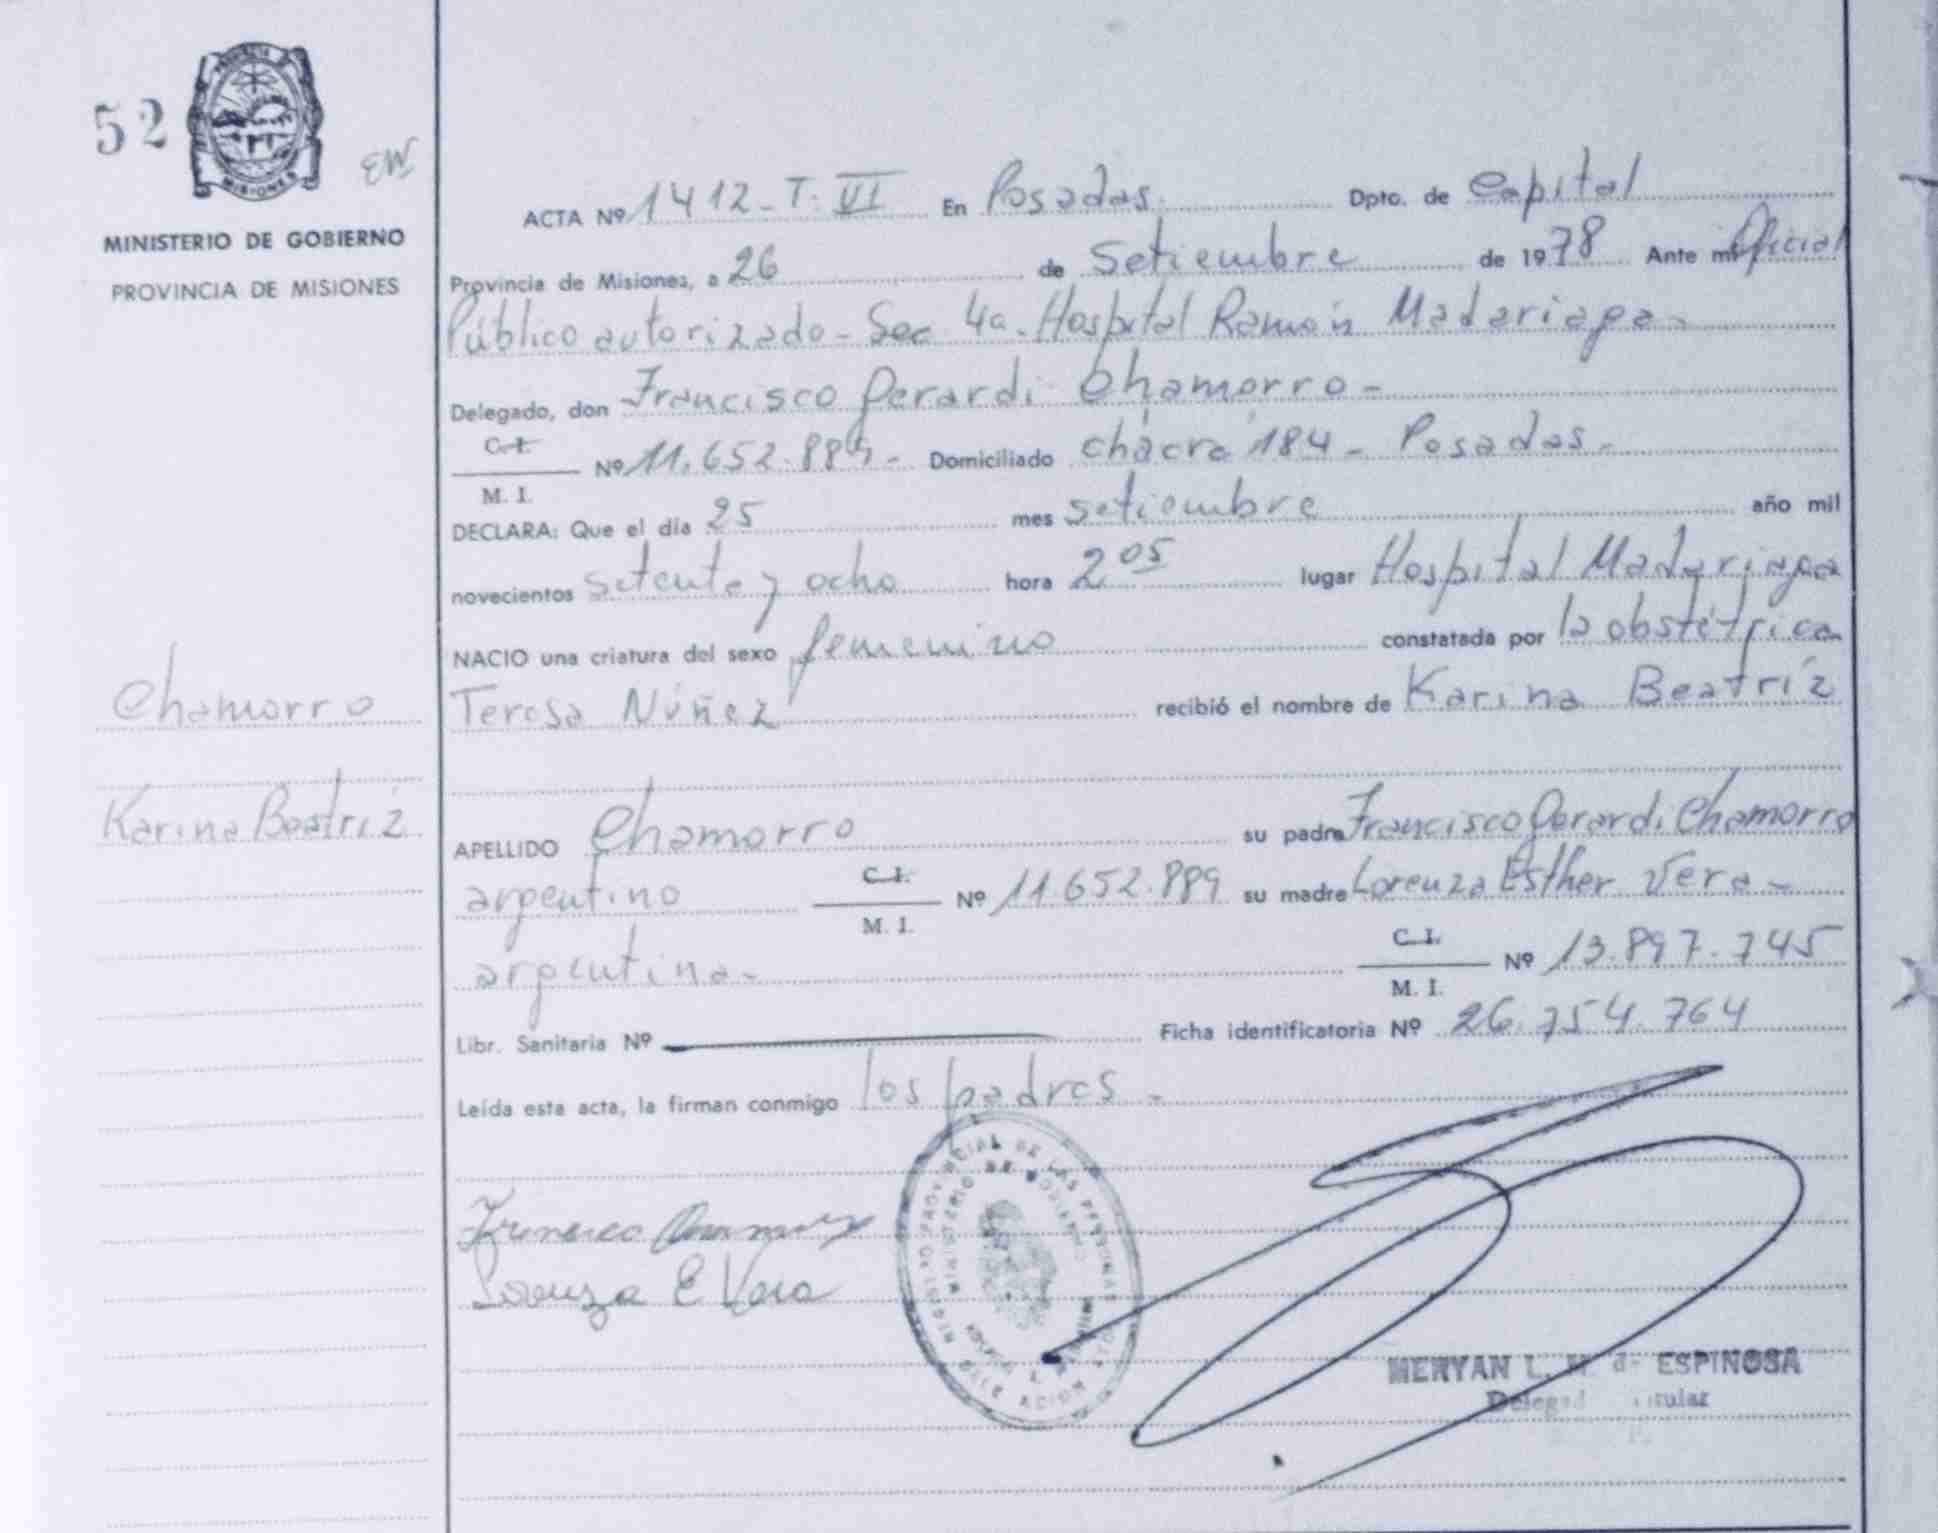 52
MISIONES
EW
MINISTERIO DE GOBIERNO
PROVINCIA DE MISIONES
ACTA Nº 1412 - T. VI En Posadas. Dpto. de Capital
Provincia de Misiones, a 26 de Setiembre de 1978 Ante mi Oficial
Público autorizado - Sec 4a. Hospital Ramón Madariaga -
Delegado, don Francisco Gerardi Chamorro -
C. I.
Nº 11.652.889 - Domiciliado chacra 184 - Posadas -
M. I.
DECLARA: Que el día 25 mes setiembre año mil
novecientos setenta y ocho hora 2 05 lugar Hospital Madariaga
NACIO una criatura del sexo femenino constatada por la obstétrica
Teresa Núñez recibió el nombre de Karina Beatríz
Chamorro
Karina Beatríz
APELLIDO Chamorro su padre Francisco Gerardi Chamorro
argentino C. I. Nº 11.652.889 su madre Lorenza Esther Vera -
M. I.
argentina - C. I. Nº 13.897.745
M. I.
Libr. Sanitaria Nº Ficha identificatoria Nº 26.754.764
Leída esta acta, la firman conmigo los padres -
Francisco Chamorro
Lorenza E Vera
REGISTRO PROVINCIAL DE LAS PERSONAS
MINISTERIO DE GOBIERNO
DELEGACION
MERYAN L. M. de ESPINOSA
Delegad Titular